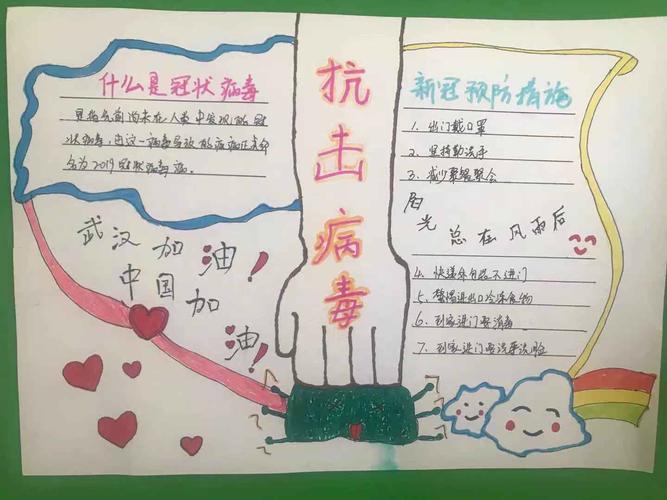 什么是冠状病毒
是指先前尚未在人类中发现的冠
状病毒,由这一病毒导致的疾病正式命
名为2019冠状病毒病。
武汉加油!
中国加油!
抗击病毒
新冠预防措施
1、出门戴口罩
2、坚持勤洗手
3、减少聚餐聚会
阳光总在风雨后
4、快递外包装不进门
5、警惕进出口冷冻食物
6、到家进门要消毒
7、到家进门要洗手洗脸